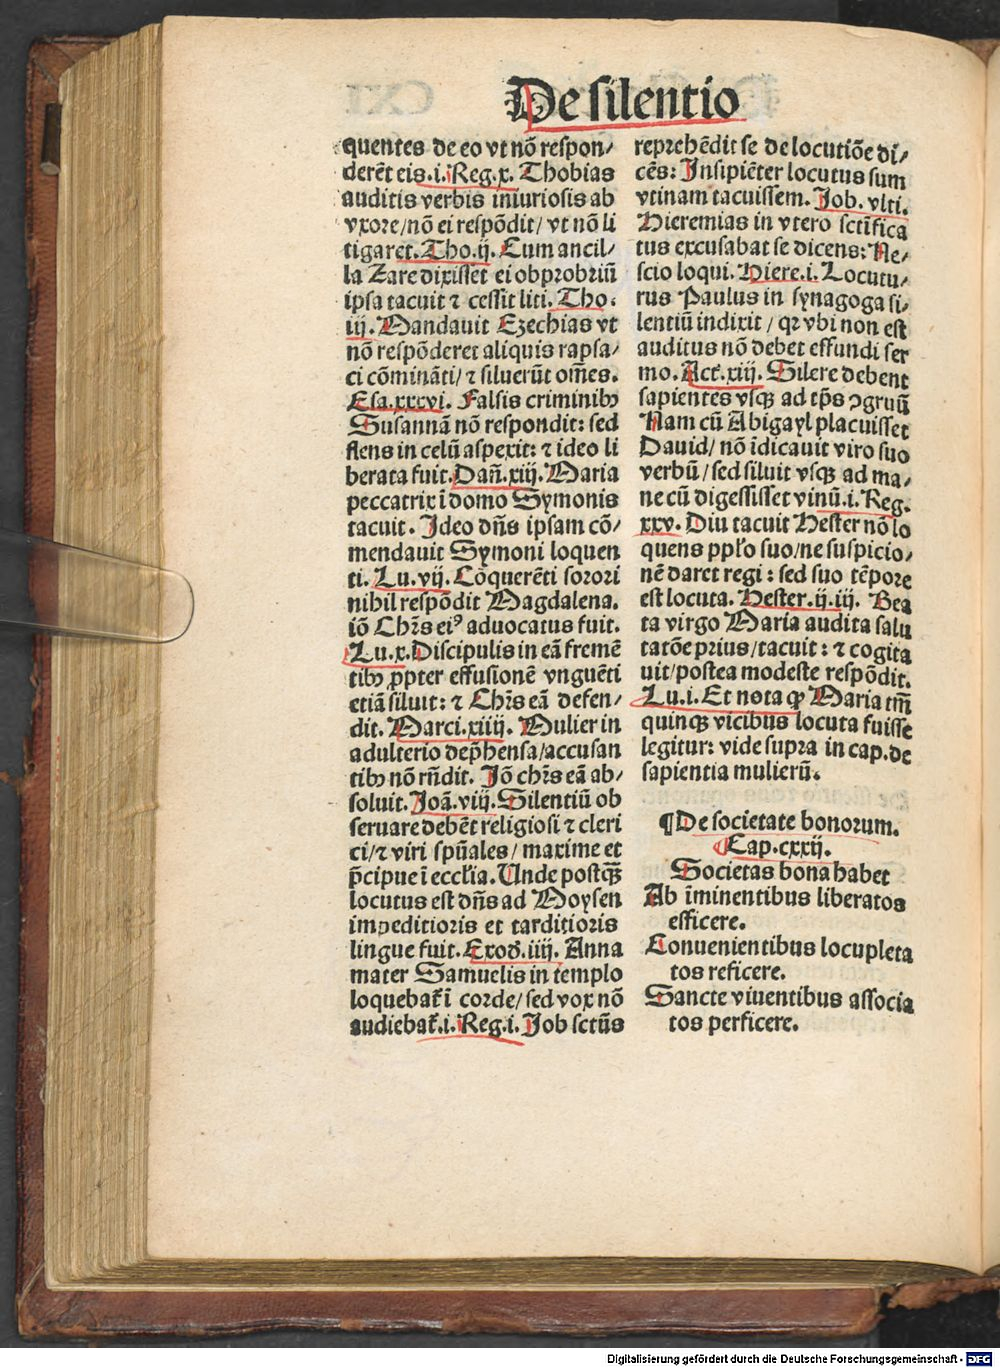 De silentio
quentes de eo vt nō respon/
derēt eis.i.Reg.x. Thobias
auditis verbis iniuriosis ab
vxore/nō ei respōdit/ vt nō li
tigaret.Tho.ij. Cum ancil/
la Zare dixisset ei obprobriū
ipsa tacuit ⁊ cessit liti. Tho.
iij. Mandauit Ezechias vt
nō respōderet aliquis rapsa/
ci cōmināti/ ⁊ siluerūt oēs.
Esa.xxxvi. Falsis criminibꝰ
Susannā nō respondit: sed
flens in celū aspexit: ⁊ ideo li
berata fuit. Dañ.xiij. Maria
peccatrix ī domo Symonis
tacuit. Ideo dñs ipsam cō/
mendauit Symoni loquen
ti. Lu.vij. Cōquerēti sorori
nihil respōdit Magdalena.
iō Chr̄s eiꝰ aduocatus fuit.
Lu.x. Discipulis in eā fremē
tibꝰ ꝓpter effusionē vnguēti
etiā siluit: ⁊ Chr̄s eā defen/
dit. Marci.xiiij. Mulier in
adulterio dep̄hensa/accusan
tibꝰ nō rñdit. Iō chr̄s eā ab/
soluit. Joā.viij. Silentiū ob
seruare debēt religiosi ⁊ cleri
ci/⁊ viri spūales/ maxime et
p̄cipue ī eccl̄ia. Unde postq̄ꝫ
locutus est dñs ad Moysen
impeditioris et tarditioris
lingue fuit. Exod.iiij. Anna
mater Samuelis in templo
loquebat̄ ī corde/ sed vox nō
audiebat̄.i.Reg.i. Job sctūs
reprehēdit se de locutiōe di/
cēs: Insipiēter locutus sum
vtinam tacuissem. Job.vlti.
Hieremias in vtero sctīfica
tus excusabat se dicens: Ne/
scio loqui. Hiere.i. Locutu/
rus Paulus in synagoga si/
lentiū indixit / qꝛ vbi non est
auditus nō debet effundi ser
mo. Act.xiij. Silere debent
sapientes vsqꝫ ad tp̄s ↄgruū
Nam cū Abigayl placuisset
Dauid/ nō īdicauit viro suo
verbū/ sed siluit vsqꝫ ad ma/
ne cū digessisset vinū.i.Reg.
xxv. Diu tacuit Hester nō lo
quens pp̄l̄o suo/ne suspicio/
nē daret regi: sed suo tēpore
est locuta. Hester.ij.iij. Bea
ta virgo Maria audita salu
tatōe prius/tacuit: ⁊ cogita
uit/postea modeste respōdit.
Lu.i. Et nota ꝙ Maria tm̄
quinqꝫ vicibus locuta fuisse
legitur: vide supra in cap.de
sapientia mulierū.
¶De societate bonorum.
Cap.cxxij.
Societas bona habet
Ab īminentibus liberatos
efficere.
Conuenientibus locupleta
tos reficere.
Sancte viuentibus associa
tos perficere.
Digitalisierung gefördert durch die Deutsche Forschungsgemeinschaft - DFG